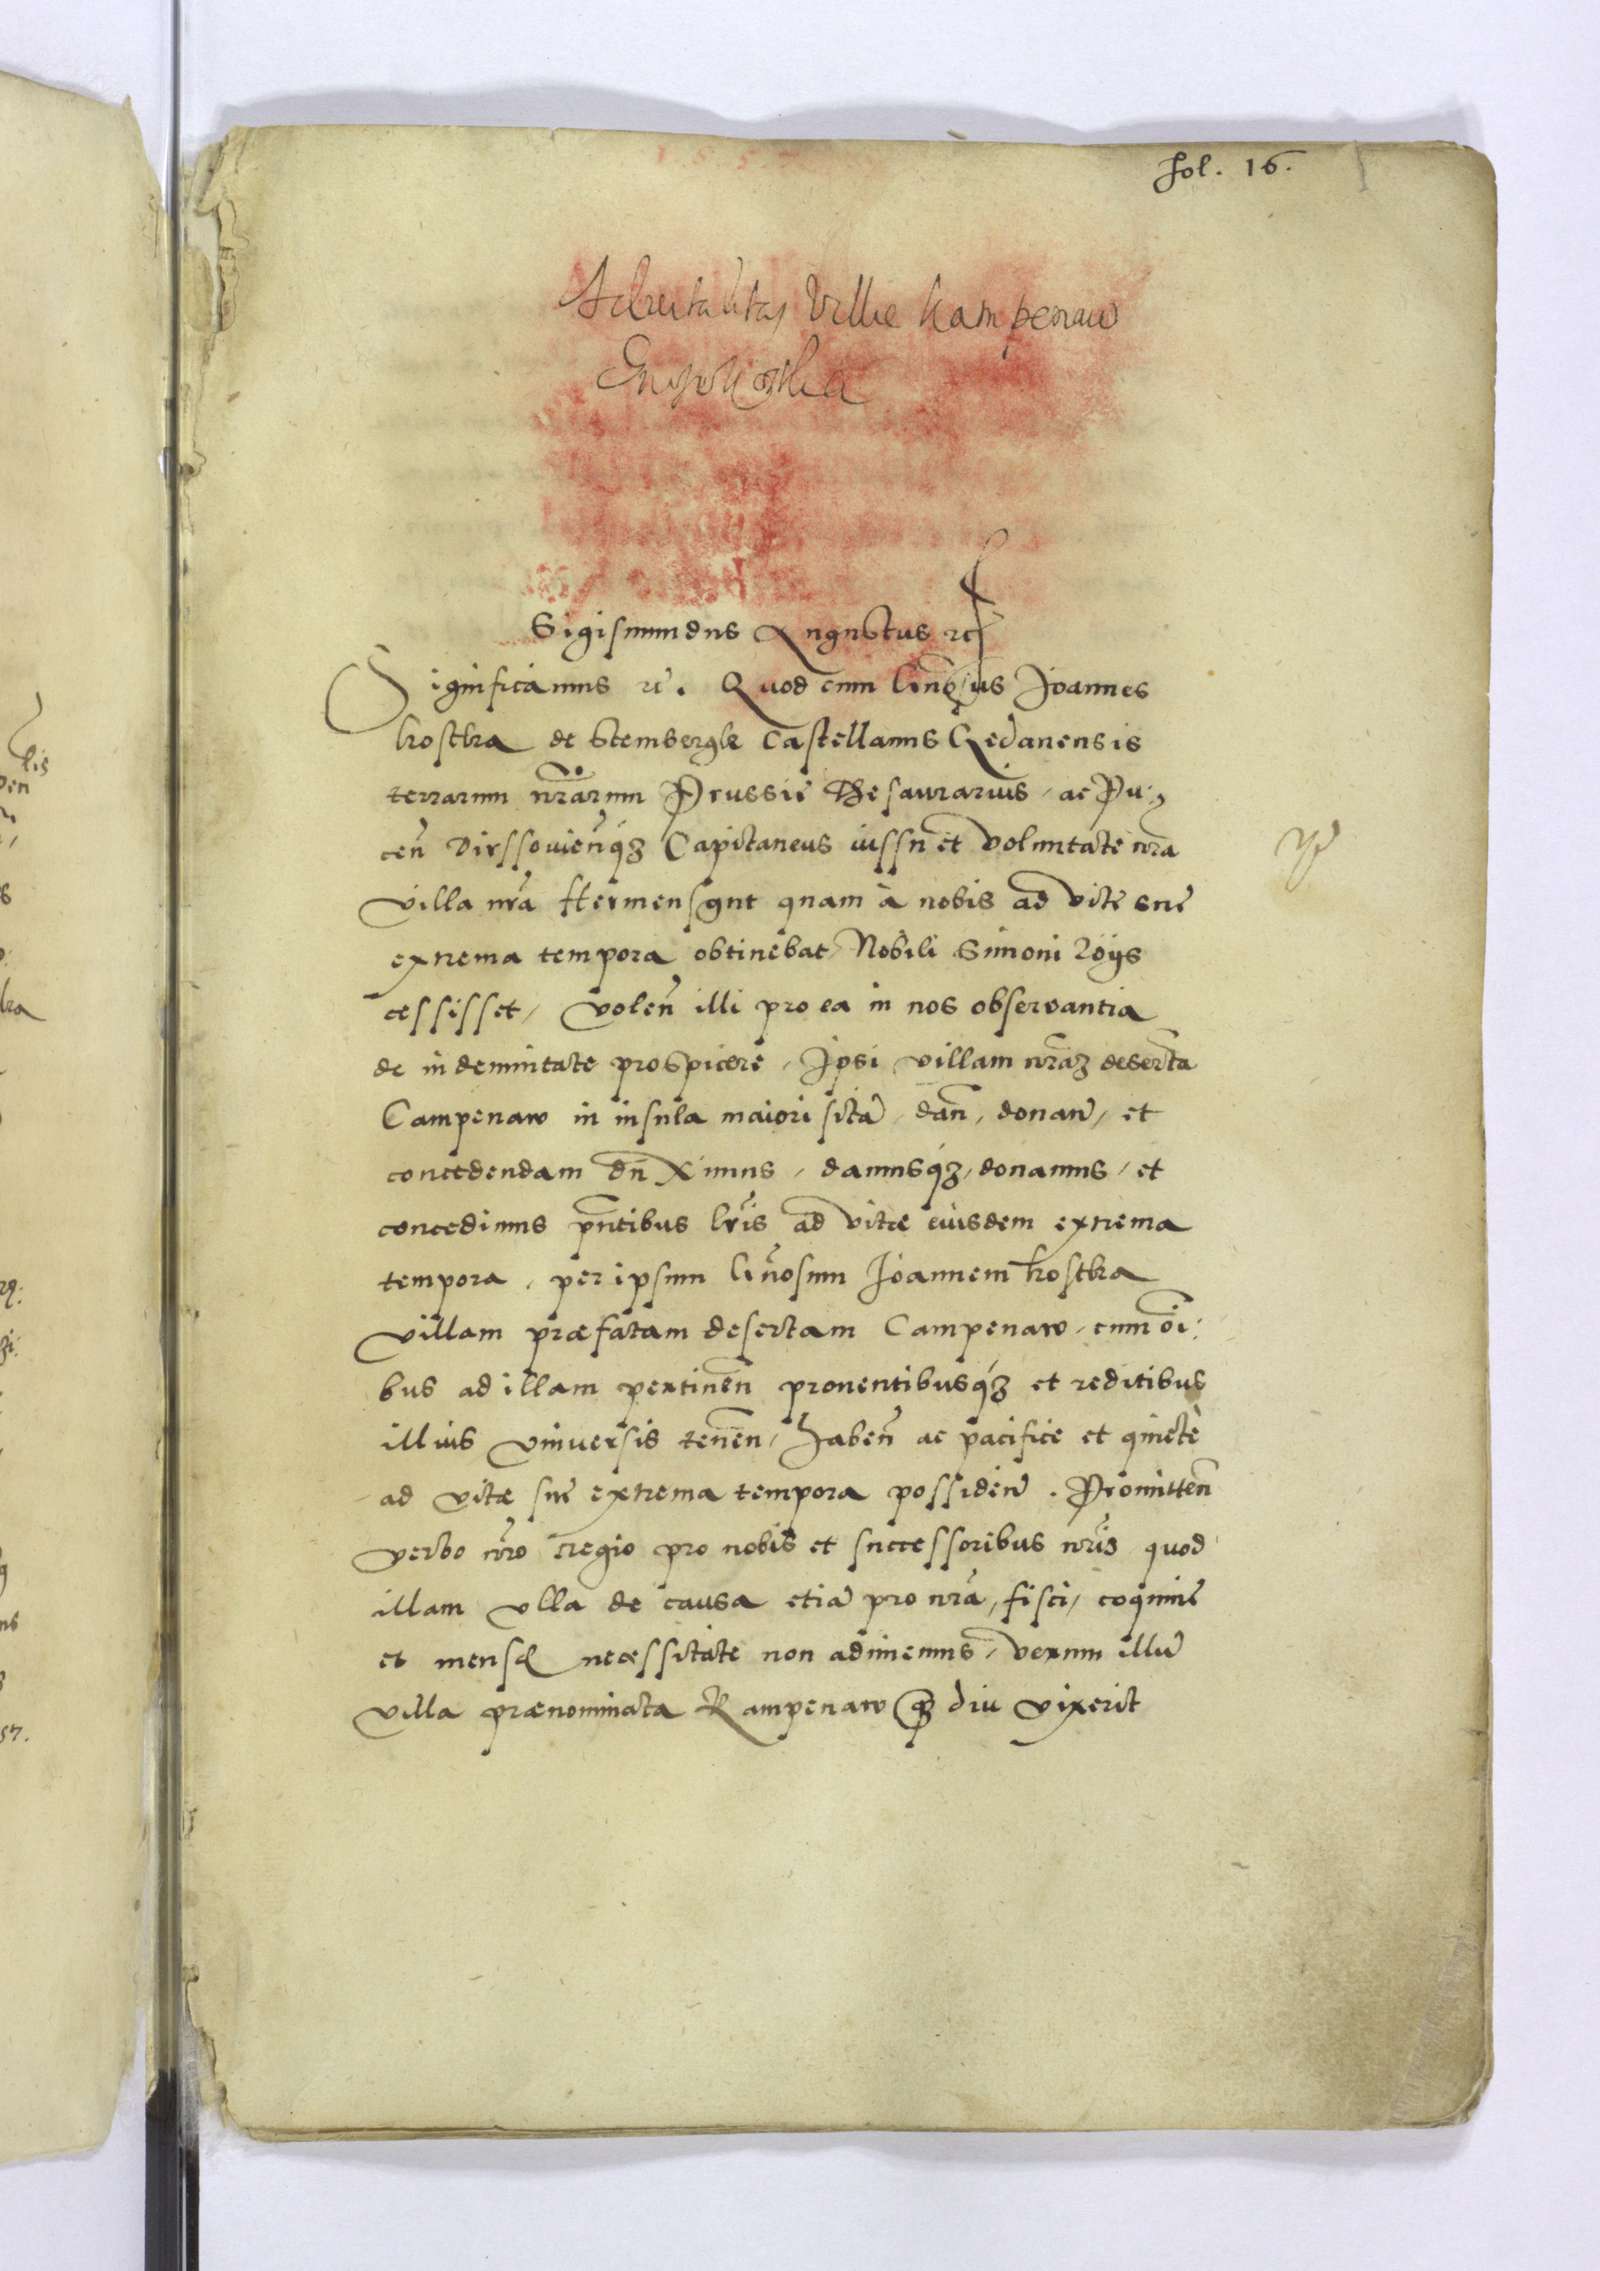 fol. 16.
Advitalitas Ville Kampenaw
Sigismundus Augustus rc
Significamus rc. Quod cum Gñosus Joannes
kostka de Stembergk Castellanus Gedanensis
terrarum nrãrum Prussie Thesaurarius, ac Pu:
ceñ Dirssovieñq3 Capitaneus iussu et voluntate nrã
villa nrã Hermensgut quam à nobis ad vite sue
extrema tempora obtinebat, Nobili Simoni Loijs
cessisset, voleñ illi pro ea in nos observantia
de indemnitate prospicere, Ipsi villam nrãm desertã
Campenaw in insula maiori sitã, dañ, donañ, et
concedendam duximus, damusq3, donamus, et
concedimus pñtibus lrĩs ad vitæ eiusdem extrema
tempora, per ipsum Gñosum Joannem kostka
villam præfatam desertam Campenaw, cum oĩ:
bus ad illam pertineñ proventibusq3 et reditibus
illius vniversis teneñ, habeñ ac pacifice et quietè
ad vitæ sue extrema tempora possideñ. Promitteñ
verbo nrõ regio pro nobis et successoribus nrĩs, quod
illam vlla de causa etiã pro nrã, fisci, coquine
et mensæ necessitate non adimemus, verum illũ
villa prænominata Kampenaw q3 diu vixerit